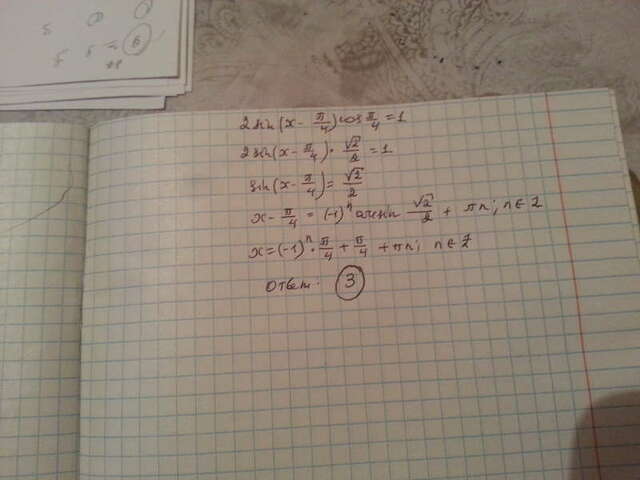 2 sin(x - π/4) cos π/4 = 1
2 sin(x - π/4) · √2/2 = 1
sin(x - π/4) = √2/2
x - π/4 = (-1)ⁿ arcsin √2/2 + πn; n ∈ Z
x = (-1)ⁿ · π/4 + π/4 + πn; n ∈ Z
Ответ: 3